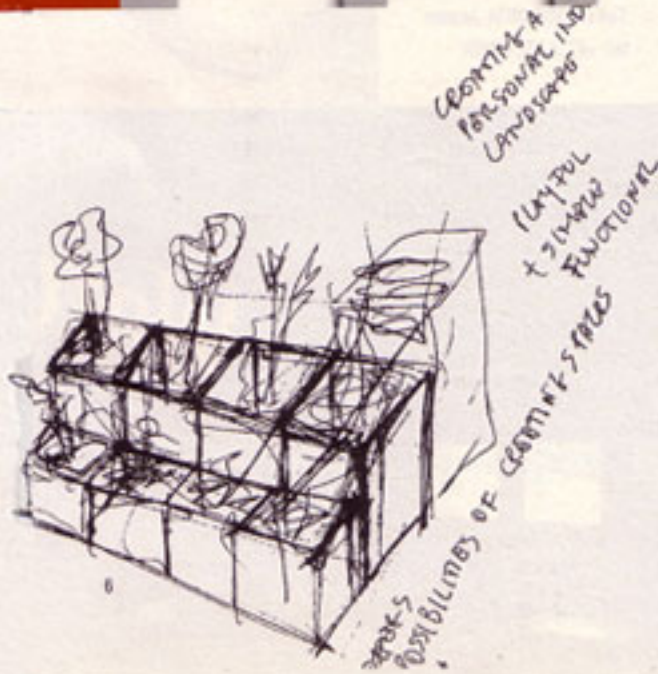 CREATING A
PERSONAL IND
LANDSCAPE
PLAYFUL
+ SIMPLE
FUNCTIONAL
POSSIBILITIES OF CREATING SPACES
6